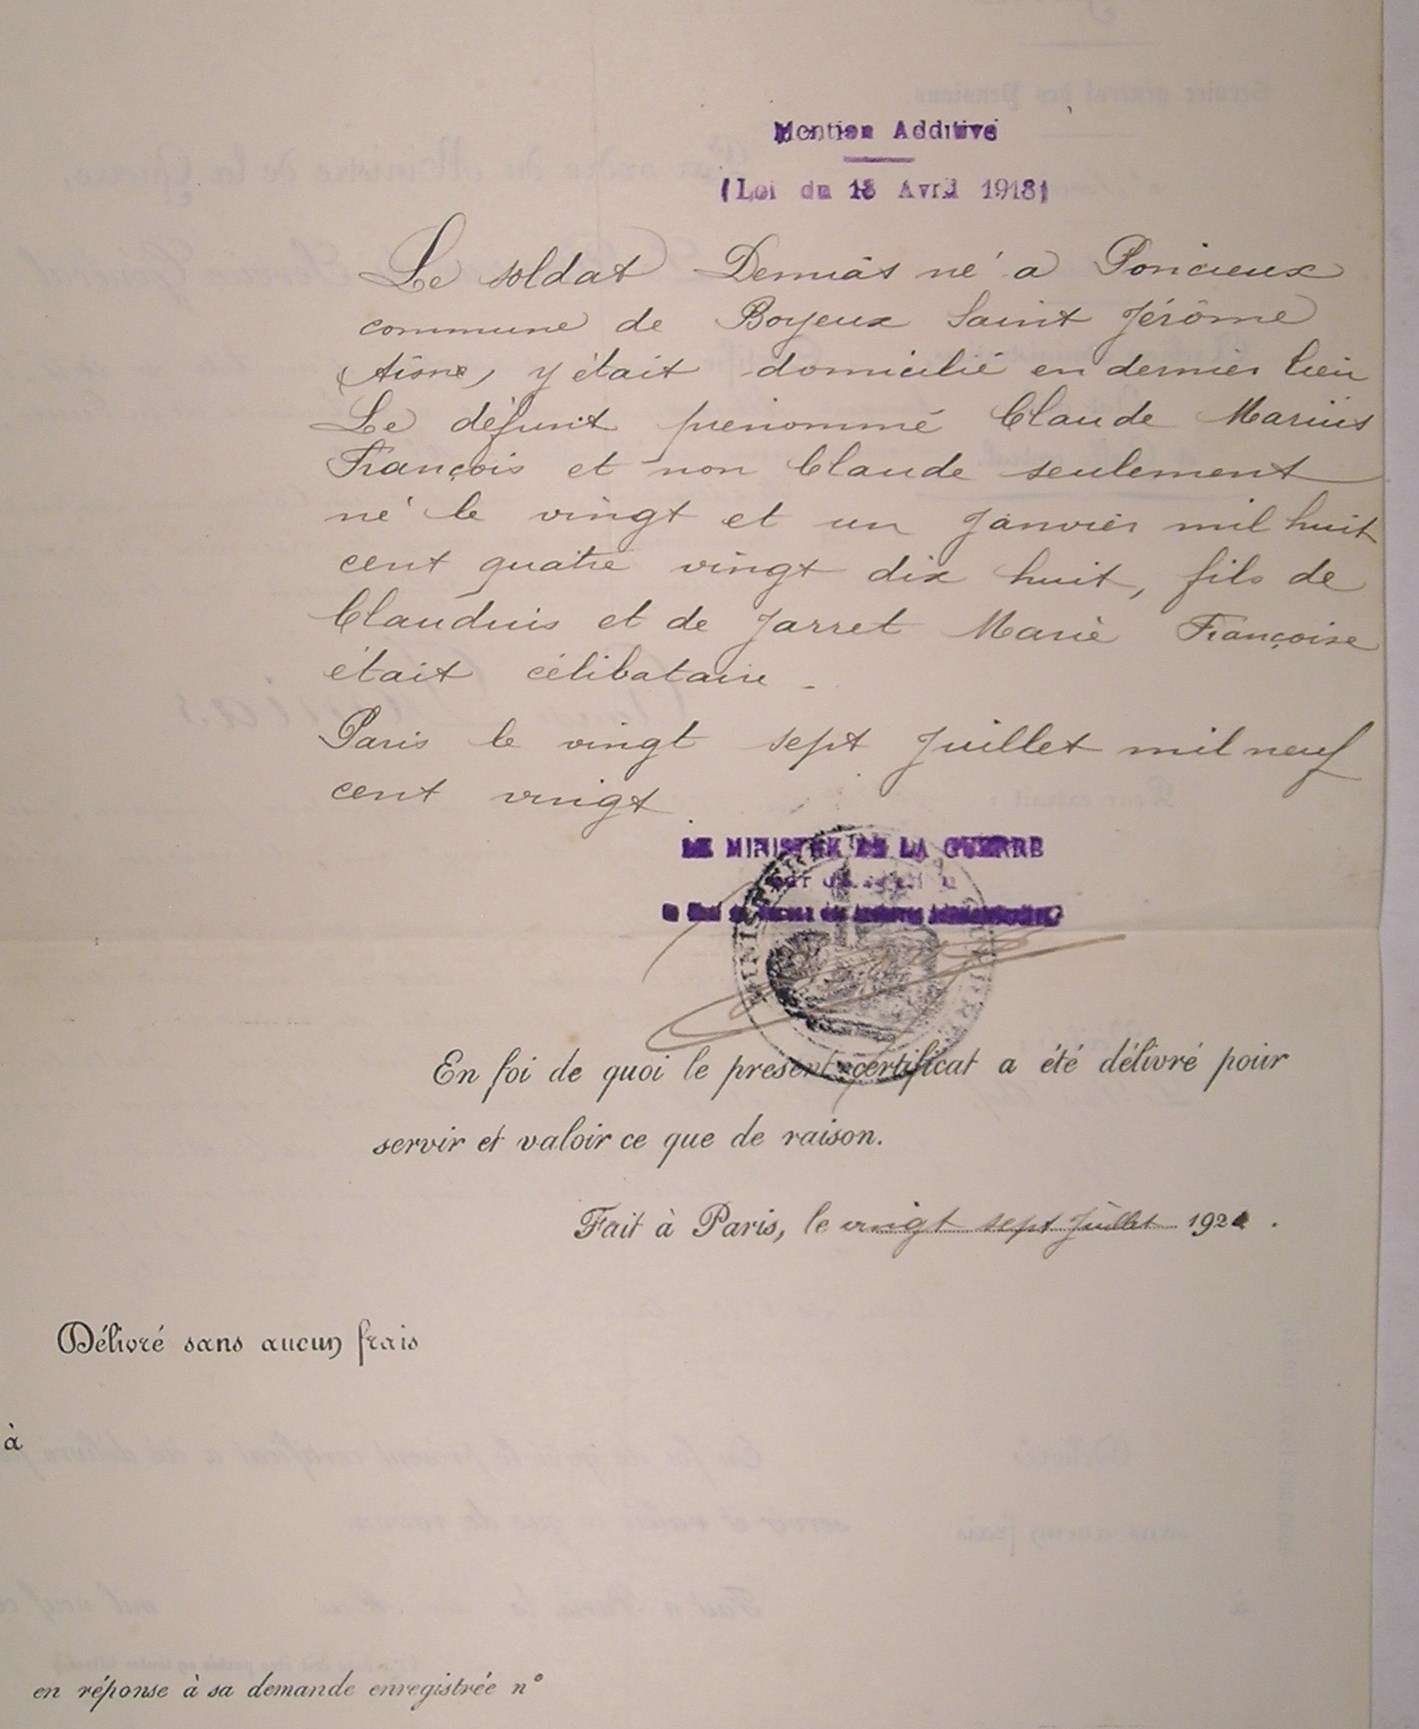 Mention Additive
(Loi du 18 Avril 1918)
Le soldat Demiäs né a Poncieux
commune de Boyeux Saint Jérôme
(Aisne) y était domicilié en dernier lieu
Le défunt prénommé Claude Marius
François et non Claude seulement
né le vingt et un Janvier mil huit
cent quatre vingt dix huit, fils de
Claudius et de Jarret Marie Françoise
était célibataire -
Paris le vingt sept Juillet mil neuf
cent vingt
LE MINISTRE DE LA GUERRE
En foi de quoi le présent certificat a été délivré pour
servir et valoir ce que de raison.
Fait à Paris, le vingt sept Juillet 192 .
Délivré sans aucun frais
à
en réponse à sa demande enregistrée n°